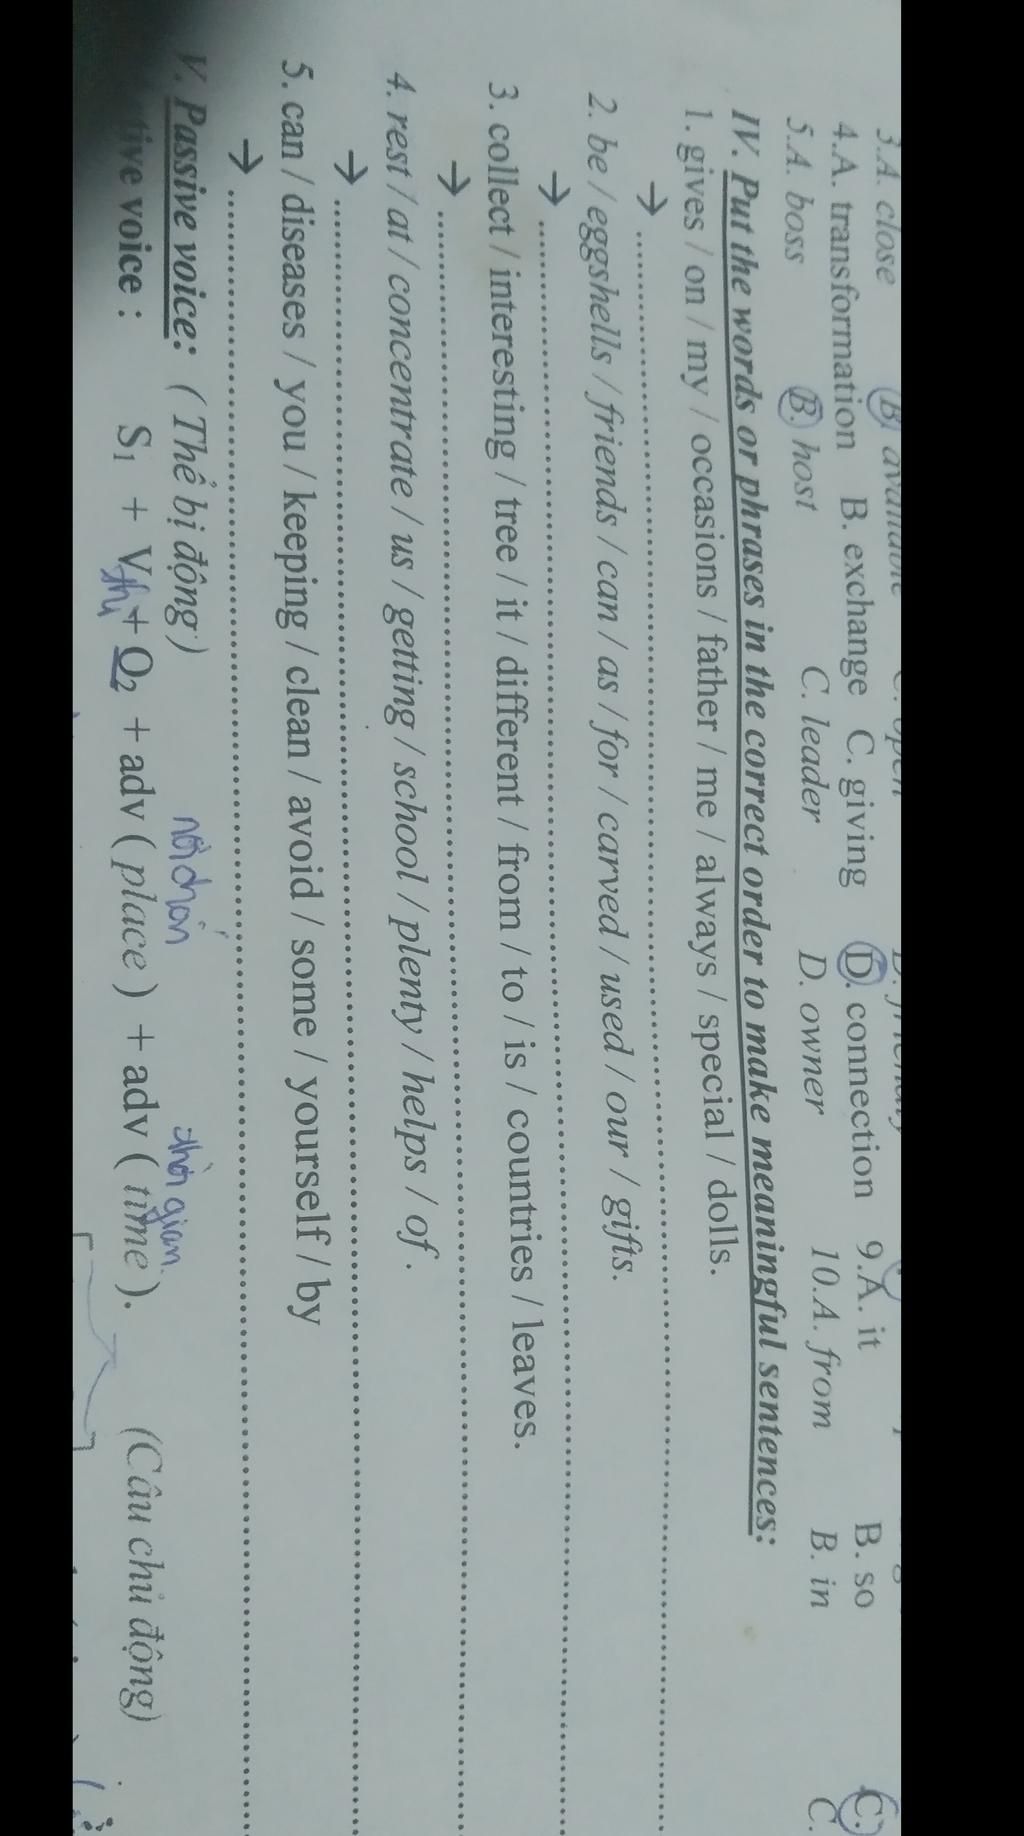 3.A. close B. available C. open D. friendly
4.A. transformation B. exchange C. giving D. connection 9.A. it B. so C.
5.A. boss B. host C. leader D. owner 10.A. from B. in C.
IV. Put the words or phrases in the correct order to make meaningful sentences:
1. gives / on / my / occasions / father / me / always / special / dolls.
→ ........................................
2. be / eggshells / friends / can / as / for / carved / used / our / gifts.
→ ........................................
3. collect / interesting / tree / it / different / from / to / is / countries / leaves.
→ ........................................
4. rest / at / concentrate / us / getting / school / plenty / helps / of .
→ ........................................
5. can / diseases / you / keeping / clean / avoid / some / yourself / by
→ ........................................
V. Passive voice: (Thể bị động)
nơi chốn thời gian
tive voice : S1 + Vthì + O2 + adv ( place ) + adv ( time ). (Câu chủ động)